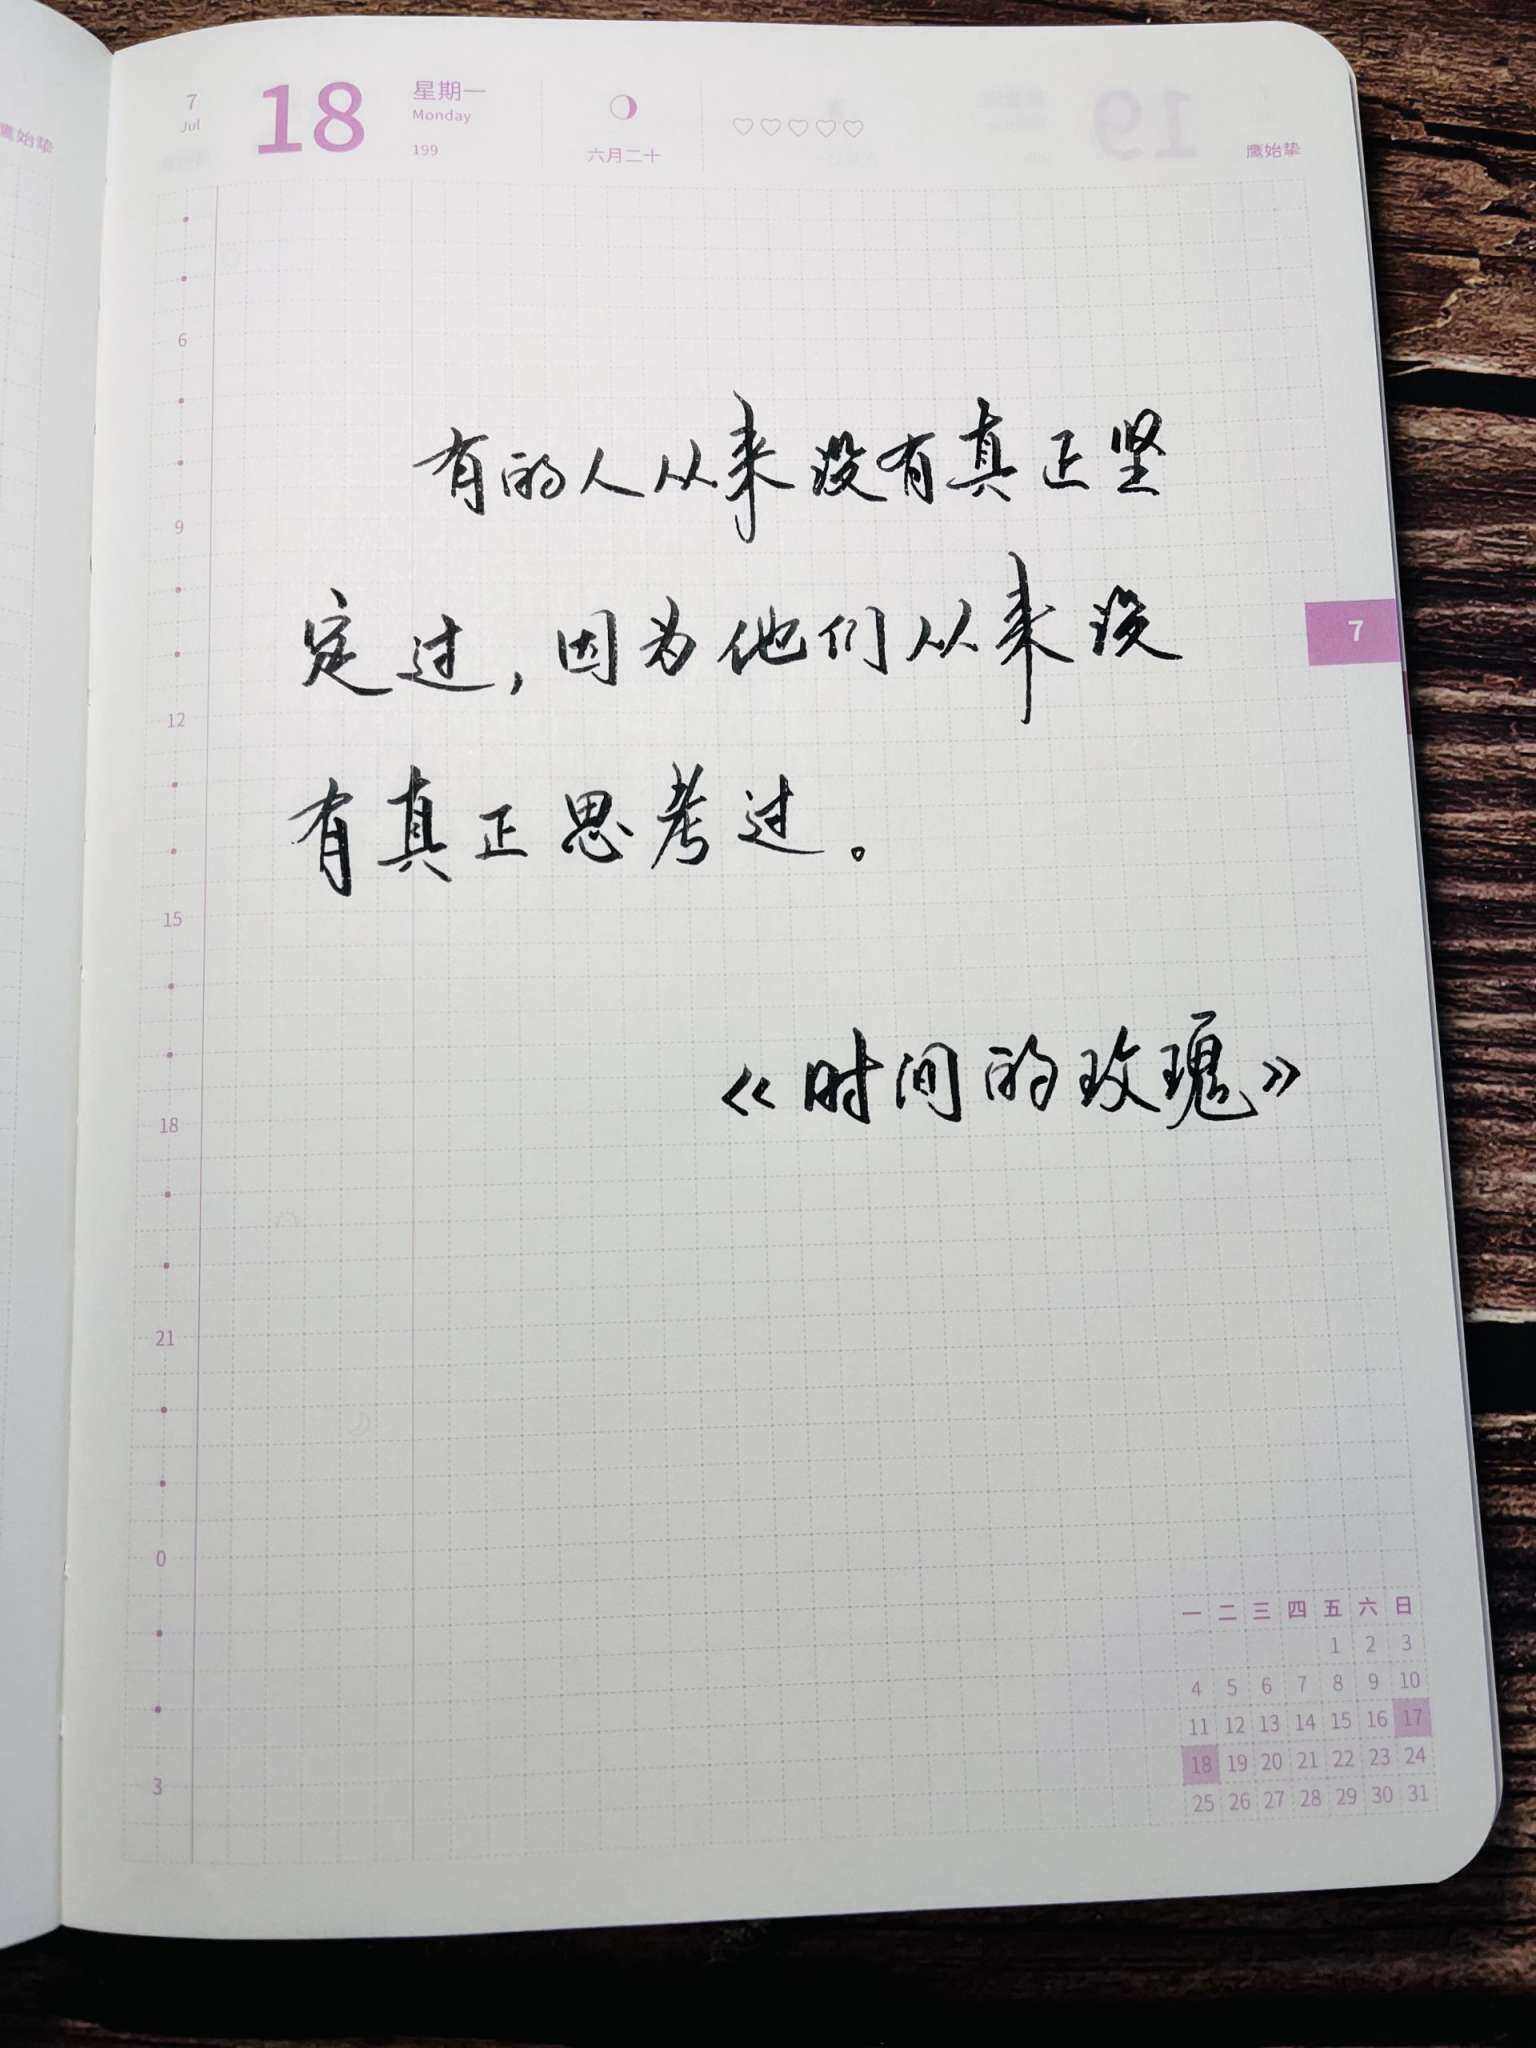 鹰始挚
7
Jul
18
星期一
Monday
199
六月二十
鹰始挚
6
9
12
15
18
21
0
3
7
有的人从来没有真正坚
定过，因为他们从来没
有真正思考过。
《时间的玫瑰》
一 二 三 四 五 六 日
1 2 3
4 5 6 7 8 9 10
11 12 13 14 15 16 17
18 19 20 21 22 23 24
25 26 27 28 29 30 31